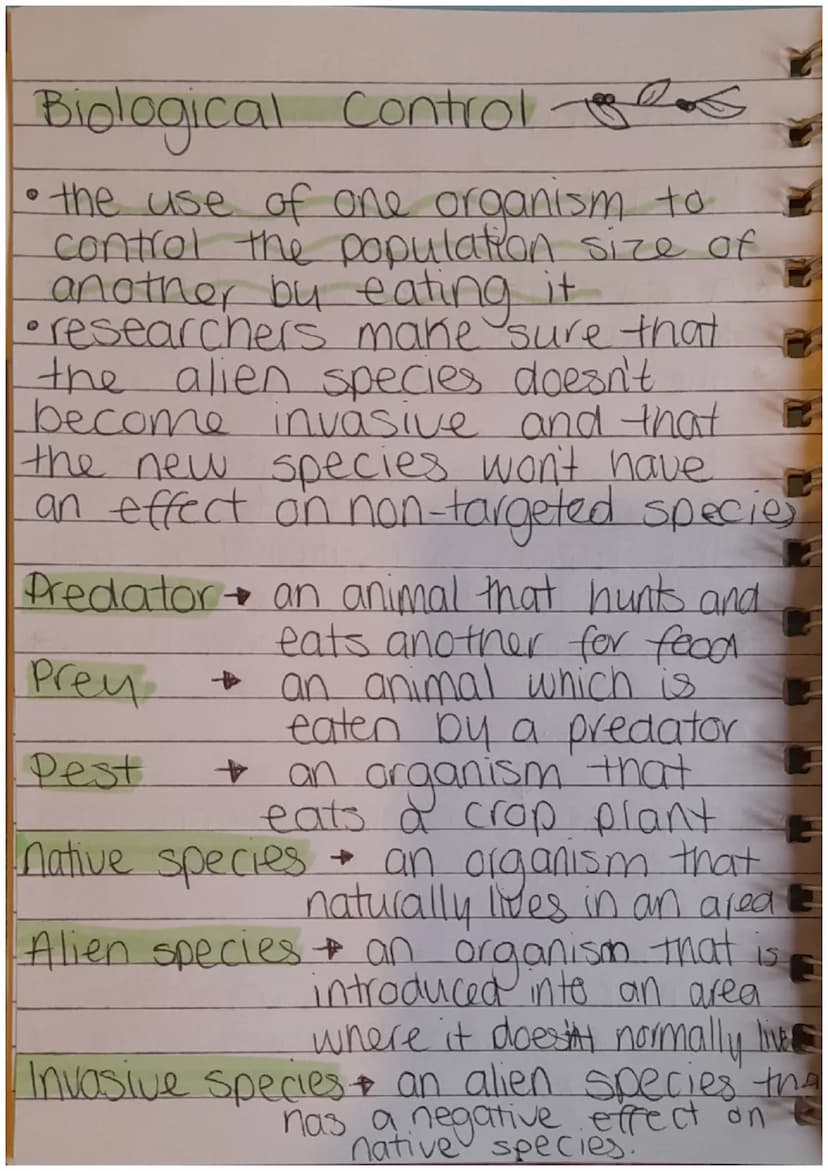 Biological Control
• the use of one organism to
control the population size of
another by eating it
• researchers make sure that
the alien species doesn't
become invasive and that
the new species won't have
an effect on non-targeted species
Predator → an animal that hunts and
eats another for food
Prey → an animal which is
eaten by a predator
Pest → an organism that
eats a crop plant
Native species → an organism that
naturally lives in an area
Alien species → an organism that is
introduced into an area
where it doesn't normally live
Invasive species → an alien species tha
has a negative effect on
native species.